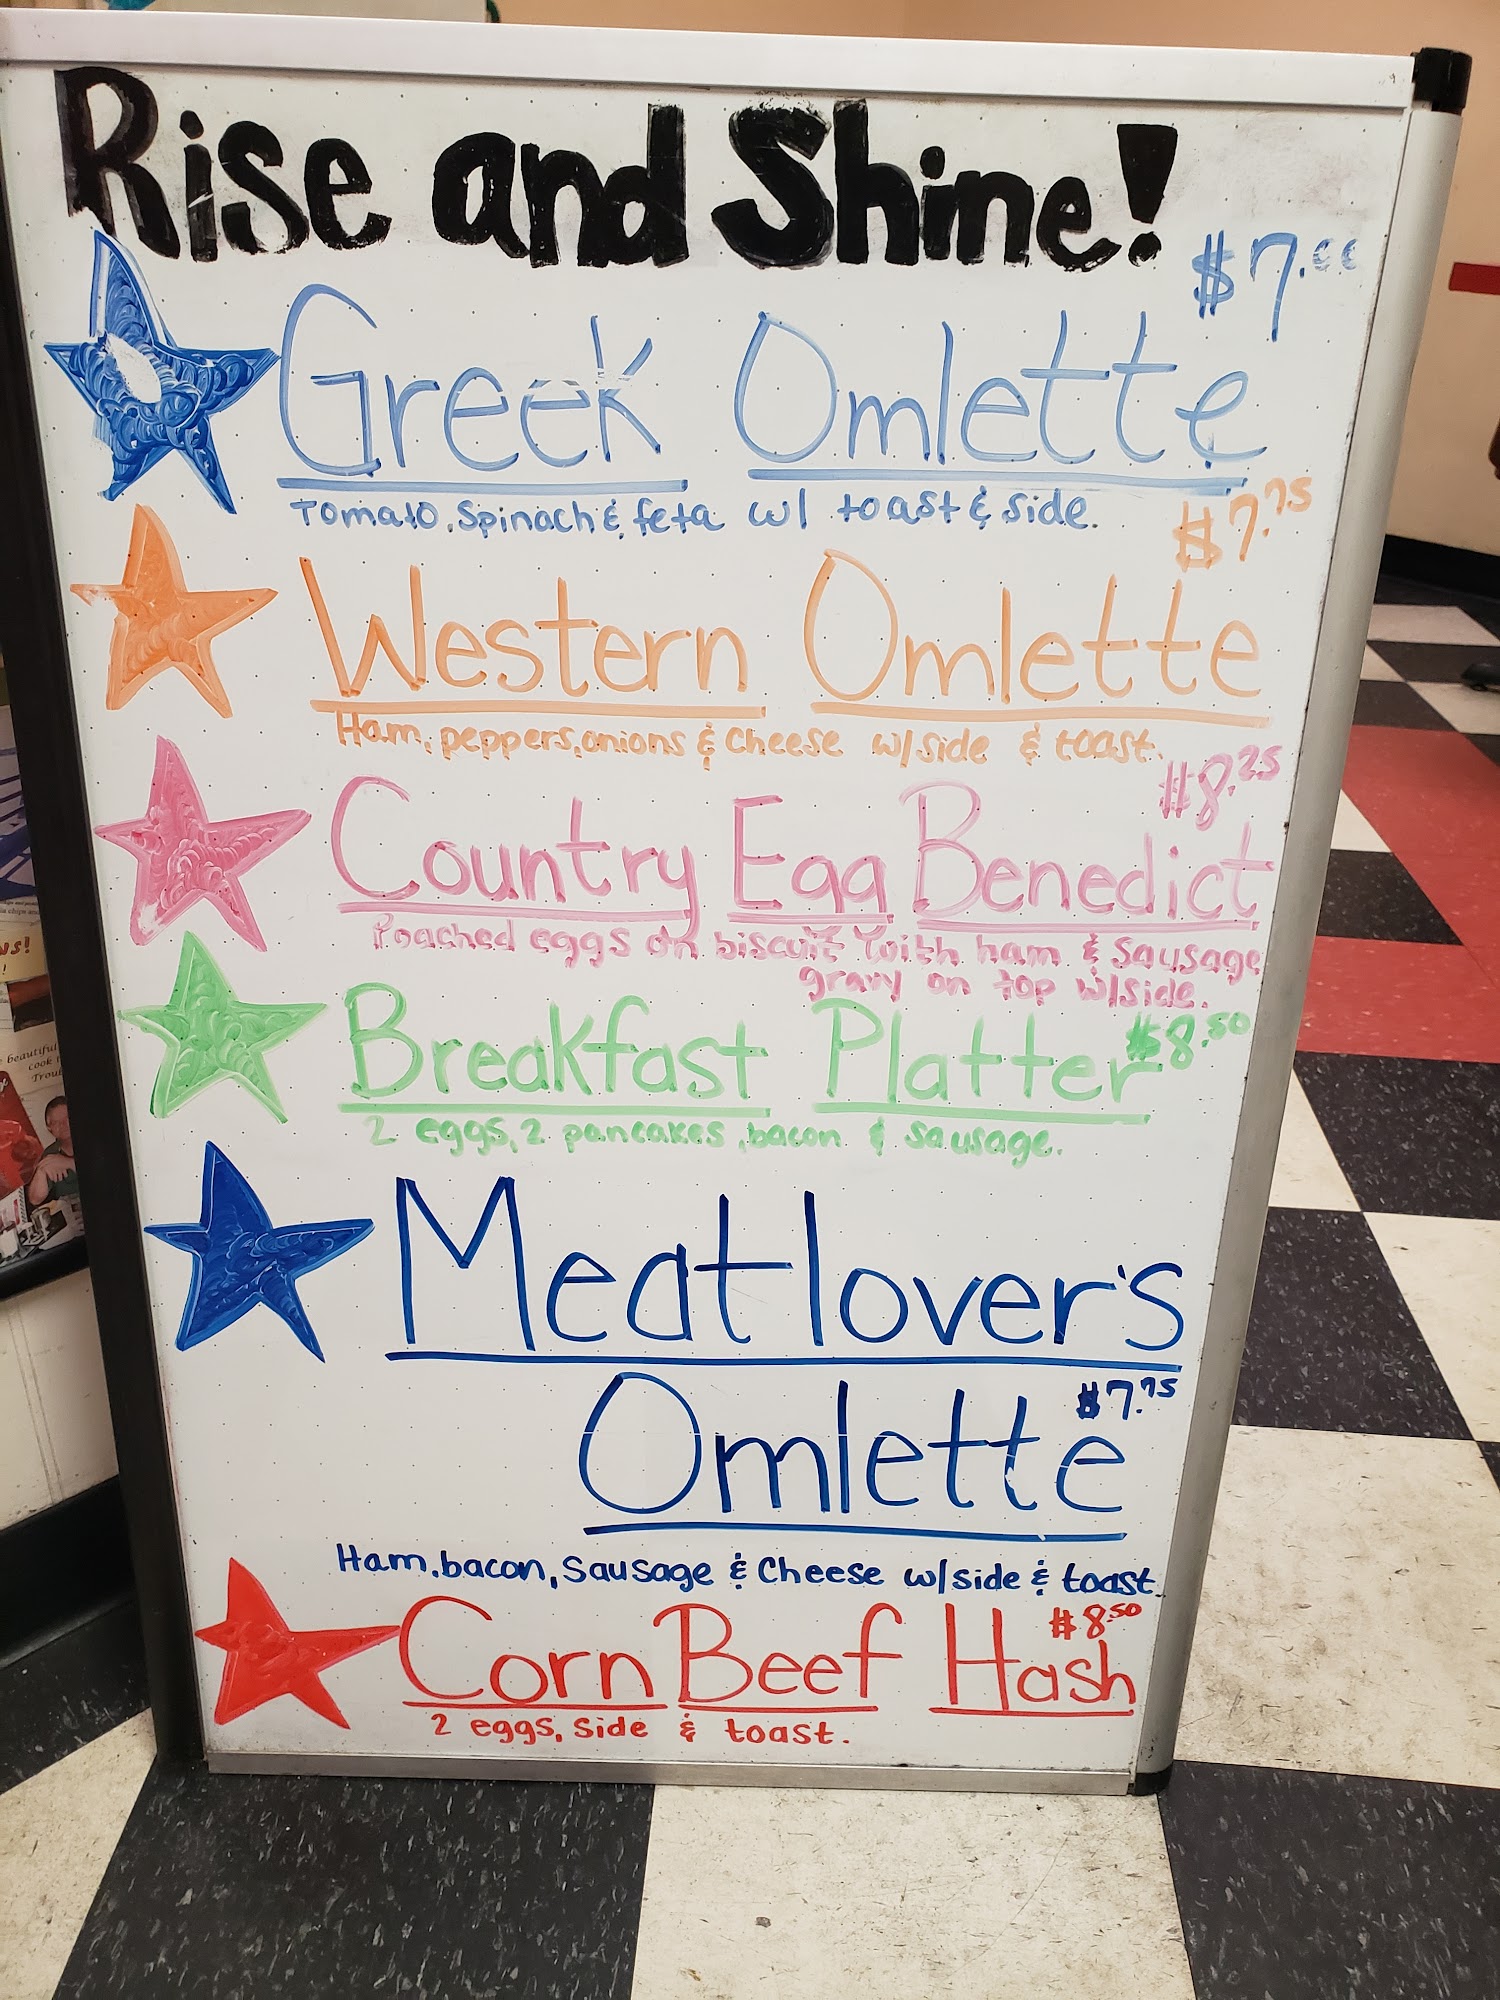 Rise and Shine!
Greek Omlette
Tomato, Spinach & feta w/ toast & side.
$7.75
Western Omlette
Ham, peppers, onions & Cheese w/side & toast.
$8.25
Country Egg Benedict
Poached eggs on biscuit with ham & Sausage
gravy on top w/side.
Breakfast Platter $8.50
2 eggs, 2 pancakes, bacon & sausage.
Meatlover's
Omlette $7.75
Ham, bacon, Sausage & Cheese w/side & toast.
Corn Beef Hash $8.50
2 eggs, Side & toast.
beautiful
cook